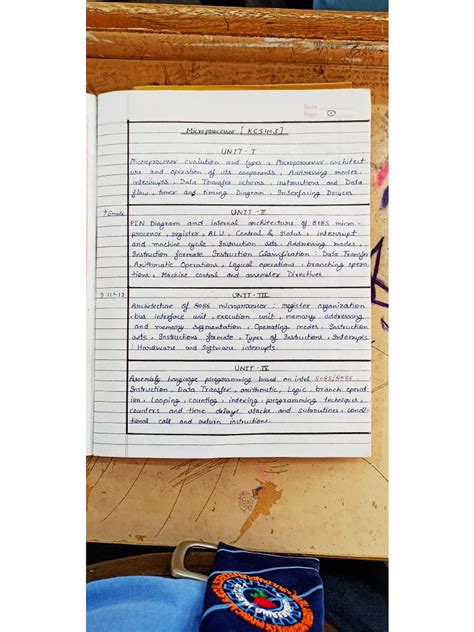 Date
Page 1
Microprocessor [ KCS403 ]
UNIT - I
Microprocessor evolution and types, Microprocessor architect
ure and operation of its components, Addressing modes,
interrupts, Data Transfer schems, instructions and Data
flow, timer and timing Diagram, Interfacing Devices.
UNIT - II
PIN Diagram and internal architecture of 8085 micro-
processor, register, ALU, Control & status, interrupt
and machine cycle, Instruction sets, Addressing modes,
Instruction formate Instruction Classification: Data Transfer
Arithmatic Operations, Logical operations, branching opera
tions, Machine control and assembler Directives.
UNIT - III
Architecture of 8086 microprocessor: register organization
, bus interface unit, execution unit, memory addressing
and memory segmentation, Operating modes, Instruction
sets, Instructions formate, Types of Instructions, Interrupts
: Hardware and Software interrupts.
UNIT - IV
Assembly language programming based on intel 8085/8086
Instruction, Data Transfer, arithmetic, Logic, branch operat
ion, Looping, counting, indexing, programming technique,
counters and time delays stacks and subroutines, condi-
tional call and return instructions.